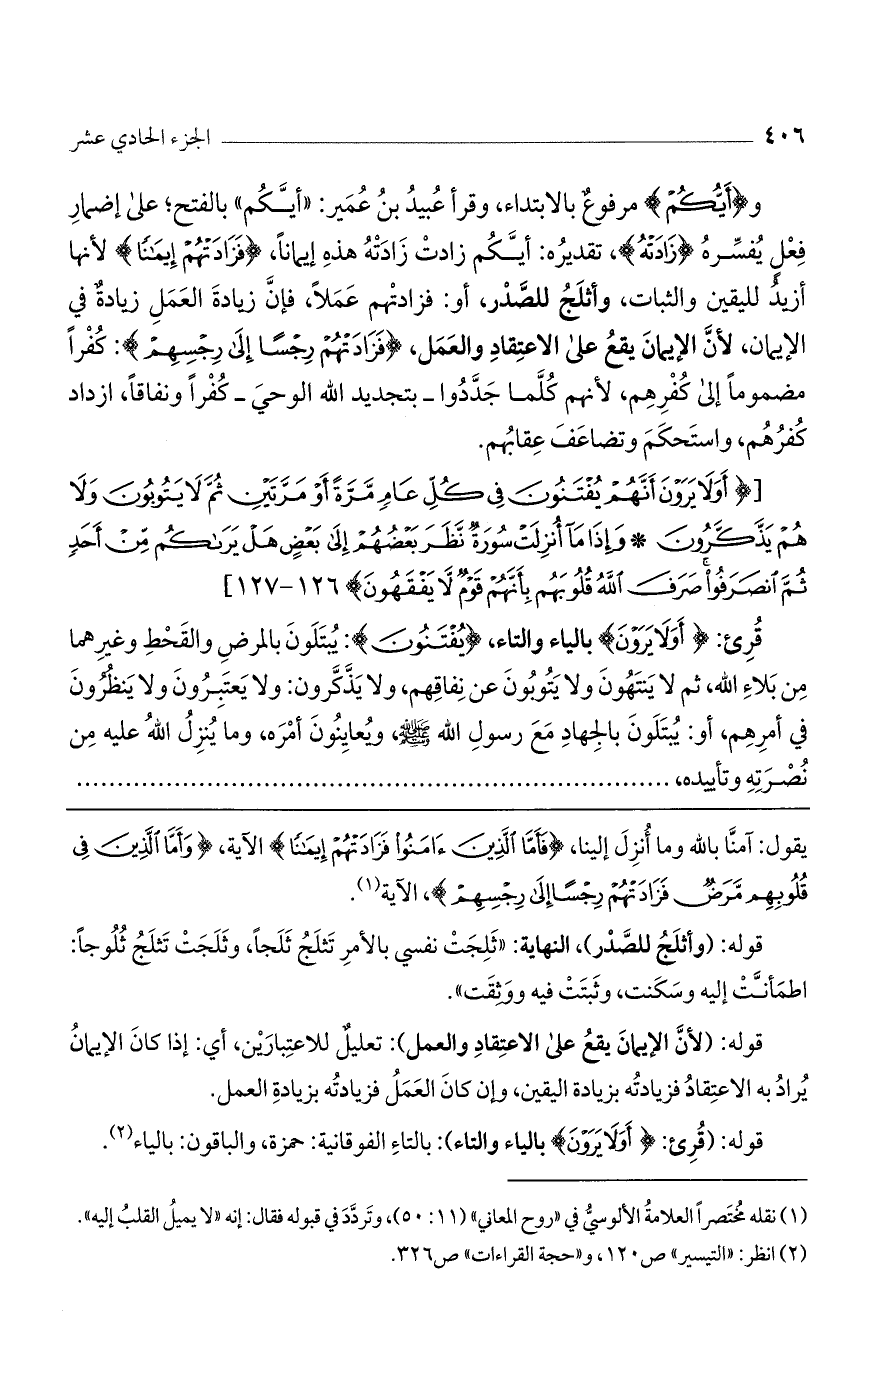 ٤٠٦ الجزء الحادي عشر
و﴿أَيُّكُمْ﴾ مرفوعٌ بالابتداء، وقرأ عُبيدُ بنُ عُمَير: «أيَّكُم» بالفتح؛ علىٰ إضمارِ
فِعْلٍ يُفسِّرهُ ﴿زَادَتْهُ﴾، تقديرُه: أيَّكُم زادتْ زَادَتْهُ هذهِ إيماناً، ﴿فَزَادَتْهُمْ إِيمَٰنًا﴾ لأنها
أزيدُ لليقين والثبات، وأثلَجُ للصَّدْر، أو: فزادتْهم عَمَلاً، فإنَّ زيادةَ العَمَلِ زيادةٌ في
الإيمان، لأنَّ الإيمانَ يقعُ علىٰ الاعتِقادِ والعَمَل، ﴿فَزَادَتْهُمْ رِجْسًا إِلَىٰ رِجْسِهِمْ﴾: كُفْراً
مضموماً إلىٰ كُفْرِهِم، لأنهم كُلَّما جَدَّدُوا ـ بتجديد الله الوحيَ ـ كُفْراً ونفاقاً، ازداد
كُفرُهُم، واستَحكَمَ وتضاعَفَ عِقابُهم.
[﴿أَوَلَا يَرَوْنَ أَنَّهُمْ يُفْتَنُونَ فِي كُلِّ عَامٍ مَّرَّةً أَوْ مَرَّتَيْنِ ثُمَّ لَا يَتُوبُونَ وَلَا
هُمْ يَذَّكَّرُونَ * وَإِذَا مَآ أُنزِلَتْ سُورَةٌ نَّظَرَ بَعْضُهُمْ إِلَىٰ بَعْضٍ هَلْ يَرَىٰكُم مِّنْ أَحَدٍ
ثُمَّ ٱنصَرَفُوا۟ ۚ صَرَفَ ٱللَّهُ قُلُوبَهُم بِأَنَّهُمْ قَوْمٌ لَّا يَفْقَهُونَ﴾ ١٢٦-١٢٧]
قُرِئ: ﴿أَوَلَا يَرَوْنَ﴾ بالياء والتاء، ﴿يُفْتَنُونَ﴾: يُبتَلَونَ بالمرضِ والقَحْطِ وغيرِهما
مِن بَلاءِ الله، ثم لا يَنتَهُونَ ولا يَتُوبُونَ عن نِفاقِهم، ولا يَذَّكَّرون: ولا يَعتَبِرُونَ ولا يَنظُرُونَ
في أمرِهِم، أو: يُبتَلَونَ بالجِهادِ مَعَ رسولِ الله ﷺ، ويُعايِنُونَ أمْرَه، وما يُنزِلُ اللهُ عليه مِن
نُصْرَتِهِ وتأييده، ..........................................................................
يقول: آمنَّا بالله وما أُنزِلَ إلينا، ﴿فَأَمَّا ٱلَّذِينَ ءَامَنُوا۟ فَزَادَتْهُمْ إِيمَٰنًا﴾ الآية، ﴿وَأَمَّا ٱلَّذِينَ فِي
قُلُوبِهِم مَّرَضٌ فَزَادَتْهُمْ رِجْسًا إِلَىٰ رِجْسِهِمْ﴾، الآية(١).
قوله: (وأثلَجُ للصَّدْر)، النهاية: «ثَلِجَتْ نفسي بالأمرِ تَثلَجُ ثَلَجاً، وثَلَجَتْ تَثلَجُ ثُلُوجاً:
اطمَأنَّتْ إليه وسَكَنت، وثَبتَتْ فيه ووَثِقَت».
قوله: (لأنَّ الإيمانَ يقعُ علىٰ الاعتِقادِ والعمل): تعليلٌ للاعتِبارَيْن، أي: إذا كانَ الإيمانُ
يُرادُ به الاعتِقادُ فزيادتُه بزيادة اليقين، وإن كانَ العَمَلُ فزيادتُه بزيادةِ العمل.
قوله: (قُرِئ: ﴿أَوَلَا يَرَوْنَ﴾ بالياء والتاء): بالتاءِ الفوقانية: حمزة، والباقون: بالياء(٢).
(١) نقله مُختَصراً العلامةُ الآلوسيُّ في «روح المعاني» (١١: ٥٠)، وتَردَّدَ في قبوله فقال: إنه «لا يميلُ القلبُ إليه».
(٢) انظر: «التيسير» ص١٢٠، و«حجة القراءات» ص٣٢٦.